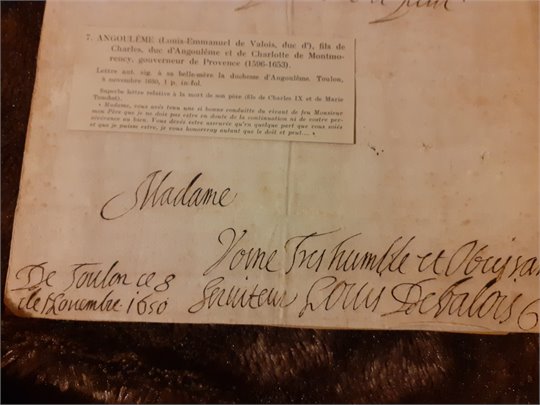 7. ANGOULÊME (Louis-Emmanuel de Valois, duc d'), fils de
Charles, duc d'Angoulême et de Charlotte de Montmo-
rency, gouverneur de Provence (1596-1653).
Lettre aut. sig. à sa belle-mère la duchesse d'Angoulême, Toulon,
8 novembre 1650, 1 p. in-fol.
Superbe lettre relative à la mort de son père (fils de Charles IX et de Marie
Touchet).
« Madame, vous avés tenu une si bonne conduitte du vivant de feu Monsieur
mon Père que je ne dois pas estre en doute de la continuation ni de vostre per-
sévérance au bien. Vous devés estre asseurée qu'en quelque part que vous soiés
et que je puisse estre, je vous honnoreray autant que le doit et peut... »
Madame
Votre Tres humble et Obeissan
Serviteur Louis De Valois
De Toulon ce 8
de Novembre 1650